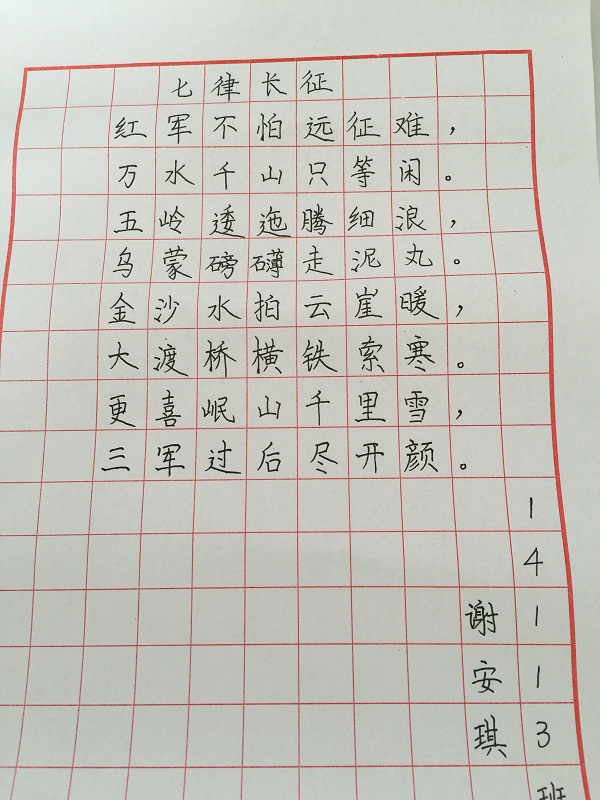 七律长征
红军不怕远征难，
万水千山只等闲。
五岭逶迤腾细浪，
乌蒙磅礴走泥丸。
金沙水拍云崖暖，
大渡桥横铁索寒。
更喜岷山千里雪，
三军过后尽开颜。
14113班
谢安琪